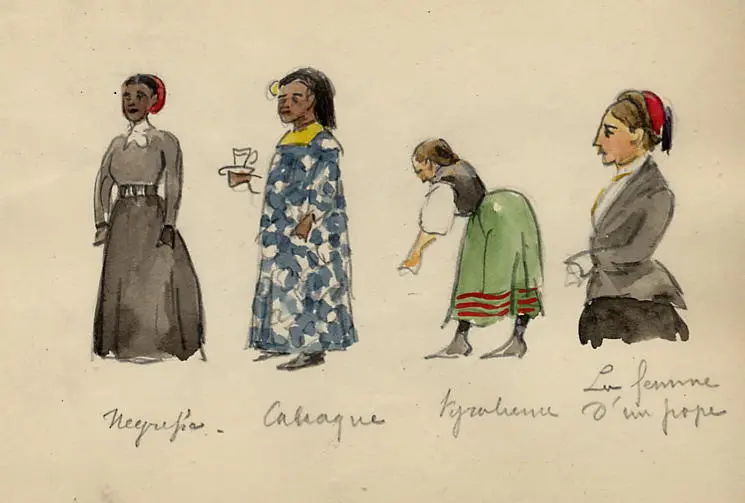 Negresse.
Canaque
Tyrolienne
La femme
D'un pope